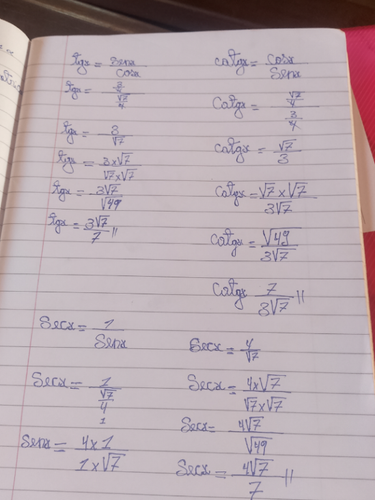 tgx = senx / cosx
tgx = 3/4 / √7/4
tgx = 3 / √7
tgx = 3x√7 / √7x√7
tgx = 3√7 / √49
tgx = 3√7 / 7 //
cotgx = cosx / senx
cotgx = √7/4 / 3/4
cotgx = √7 / 3
cotgx = √7 x √7 / 3√7
cotgx = √49 / 3√7
cotgx = 7 / 3√7 //
Secx = 1 / Senx
Secx = 1 / √7/4 / 1
Senx = 4x1 / 1x√7
Secx = 4 / √7
Secx = 4x√7 / √7x√7
Sec = 4√7 / √49
Secx = 4√7 / 7 //